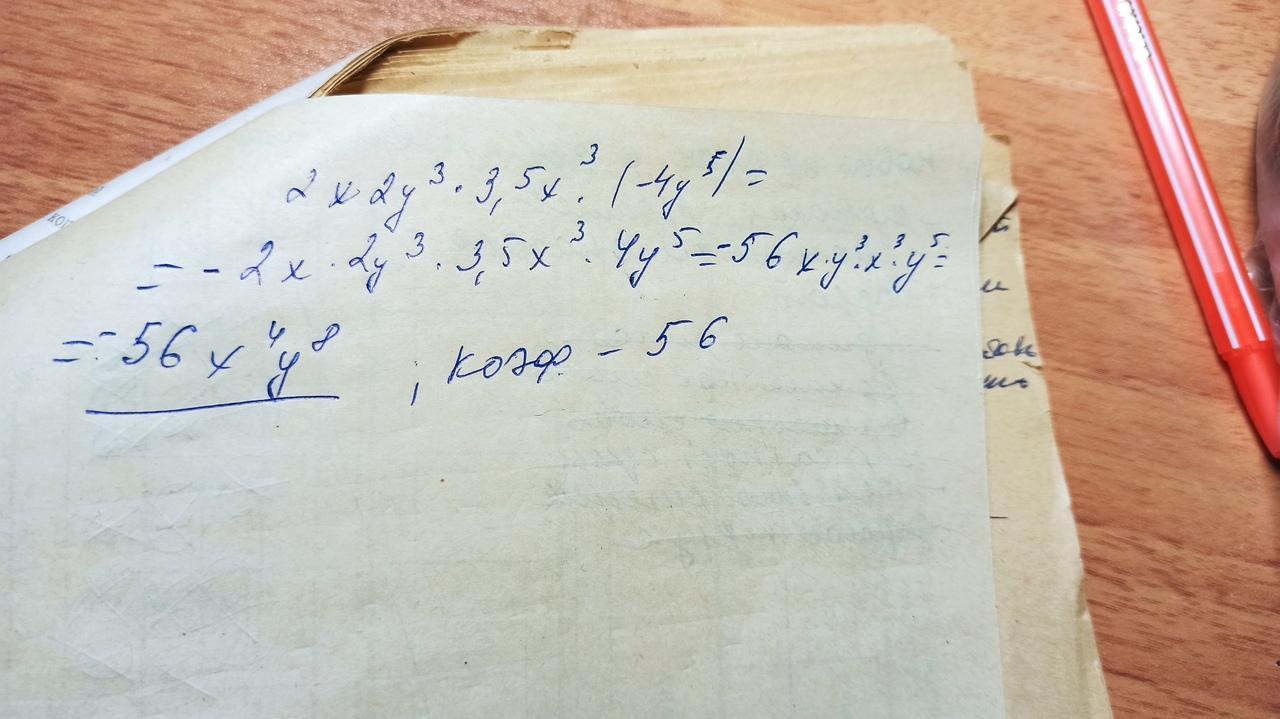 2 x 2y³ · 3,5x³ · (-4y⁵) =
= - 2x · 2y³ · 3,5x³ · 4y⁵ = -56 x·y³·x³·y⁵ =
= -56 x⁴y⁸ ; коэф - 56